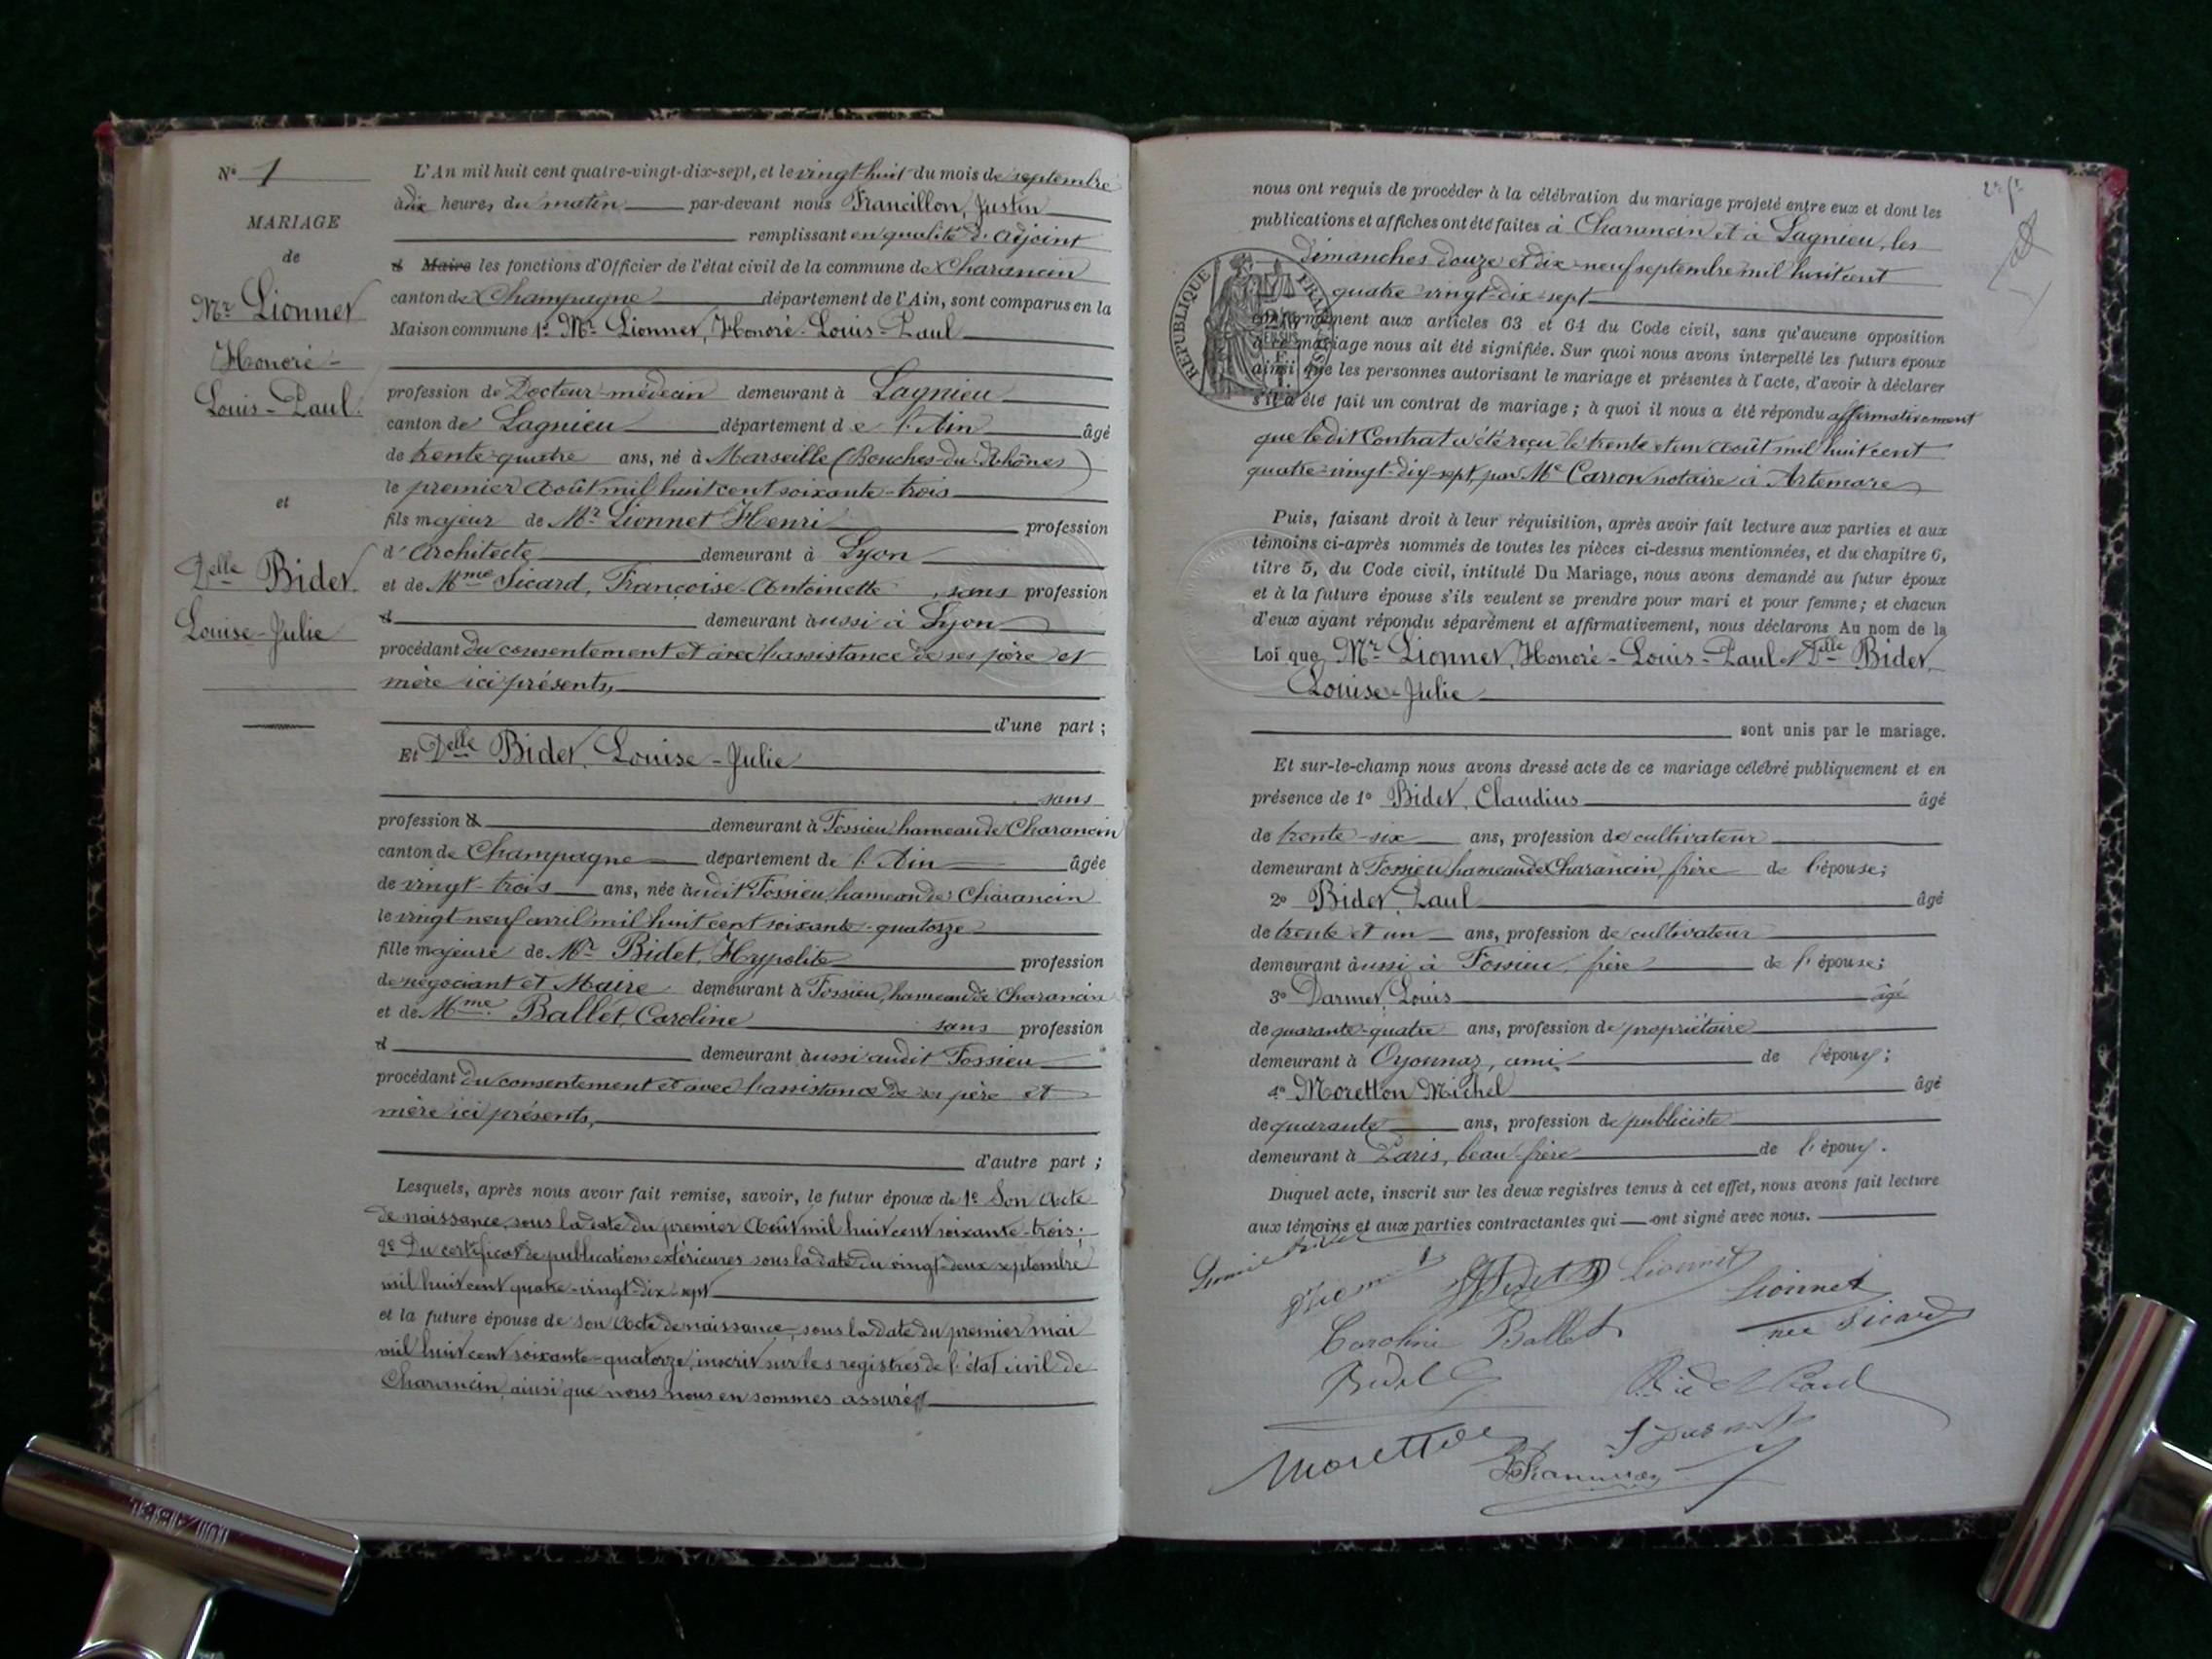 N° 1
MARIAGE
de
Mr Lionnet
Honoré-
Louis-Paul.
et
Delle Bidet.
Louise-Julie
L'An mil huit cent quatre-vingt-dix-sept, et le vingt-huit du mois de septembre
à dix heures du matin par-devant nous Francillon, Justin
remplissant en qualité d'adjoint
d Maire les fonctions d'Officier de l'état civil de la commune de Charancin
canton de Champagne département de l'Ain, sont comparus en la
Maison commune 1° Mr Lionnet, Honoré-Louis-Paul
profession de Docteur-médecin demeurant à Lagnieu
canton de Lagnieu département de l'Ain âgé
de trente-quatre ans, né à Marseille (Bouches-du-Rhône)
le premier Août mil huit cent soixante-trois
fils majeur de Mr Lionnet Henri profession
d'Architecte demeurant à Lyon
et de Mme Sicard, Françoise-Antoinette, sans profession
d demeurant aussi à Lyon
procédant du consentement et avec l'assistance de ses père et
mère ici présents,
d'une part ;
Et Delle Bidet, Louise-Julie
sans
profession d demeurant à Fossieu, hameau de Charancin
canton de Champagne département de l'Ain âgée
de vingt-trois ans, née audit Fossieu, hameau de Charancin
le vingt-neuf avril mil huit cent soixante-quatorze
fille majeure de Mr Bidet, Hypolite profession
de négociant et Maire demeurant à Fossieu, hameau de Charancin
et de Mme Ballet, Caroline sans profession
d demeurant aussi audit Fossieu
procédant du consentement et avec l'assistance de ses père et
mère ici présents,
d'autre part ;
Lesquels, après nous avoir fait remise, savoir, le futur époux de 1° Son Acte
de naissance, sous la date du premier Août mil huit cent soixante-trois ;
2° Du certificat de publications extérieures sous la date du vingt-deux septembre
mil huit cent quatre-vingt-dix-sept
et la future épouse de son Acte de naissance, sous la date du premier mai
mil huit cent soixante-quatorze, inscrit sur les registres de l'état civil de
Charancin, ainsi que nous nous en sommes assurés
nous ont requis de procéder à la célébration du mariage projeté entre eux et dont les
publications et affiches ont été faites à Charancin et à Lagnieu, les
dimanches douze et dix-neuf septembre mil huit cent
quatre-vingt-dix-sept
RÉPUBLIQUE FRANÇAISE
conformément aux articles 63 et 64 du Code civil, sans qu'aucune opposition
à ce mariage nous ait été signifiée. Sur quoi nous avons interpellé les futurs époux
ainsi que les personnes autorisant le mariage et présentes à l'acte, d'avoir à déclarer
s'il a été fait un contrat de mariage ; à quoi il nous a été répondu affirmativement
que ledit Contrat a été reçu le trente et un Août mil huit cent
quatre-vingt-dix-sept, par Me Carron notaire à Artemare
Puis, faisant droit à leur réquisition, après avoir fait lecture aux parties et aux
témoins ci-après nommés de toutes les pièces ci-dessus mentionnées, et du chapitre 6,
titre 5, du Code civil, intitulé Du Mariage, nous avons demandé au futur époux
et à la future épouse s'ils veulent se prendre pour mari et pour femme ; et chacun
d'eux ayant répondu séparément et affirmativement, nous déclarons Au nom de la
Loi que Mr Lionnet, Honoré-Louis-Paul et Delle Bidet,
Louise-Julie
sont unis par le mariage.
Et sur-le-champ nous avons dressé acte de ce mariage célébré publiquement et en
présence de 1° Bidet, Claudius âgé
de trente-six ans, profession de cultivateur
demeurant à Fossieu, hameau de Charancin, frère de l'épouse ;
2° Bidet, Paul âgé
de trente et un ans, profession de cultivateur
demeurant aussi à Fossieu, frère de l'épouse ;
3° Darmet, Louis âgé
de quarante-quatre ans, profession de propriétaire
demeurant à Oyonnaz, ami de l'époux ;
4° Moretton Michel âgé
de quarante ans, profession de publiciste
demeurant à Paris, beau-frère de l'époux.
Duquel acte, inscrit sur les deux registres tenus à cet effet, nous avons fait lecture
aux témoins et aux parties contractantes qui ont signé avec nous.
Louise Bidet
Bidet Lionnet
Lionnet
Caroline Ballet née Sicard
Bidet C Bidet Paul
Moretton